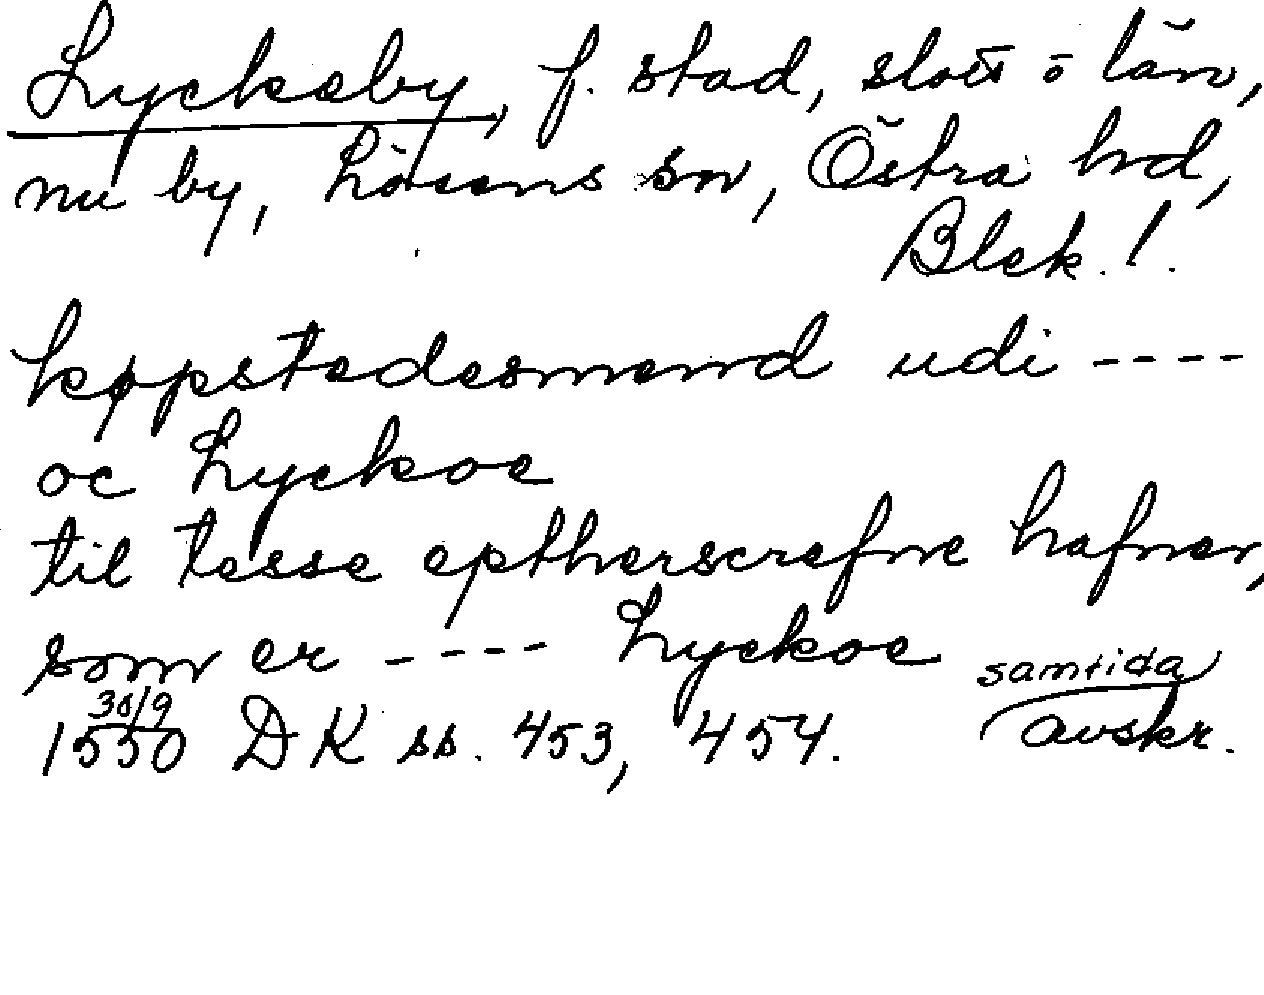 Lyckeby, f. stad, slott o län,
nu by, Lösens sn, Östra hd,
Blek. l.
køpstedesmend udi ----
oc Lyckoe
til tesse eptherscrefne hafner,
som er ---- Lyckoe samtida
30/9
1550 DK ss. 453, 454. avskr.